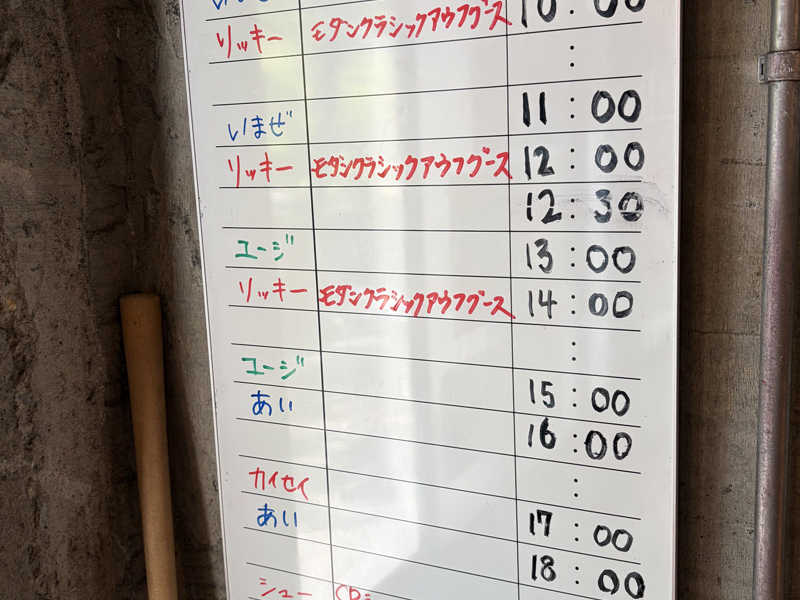 リッキー モダンクラシックアウフグース 10:00
:
いまぜ 11:00
リッキー モダンクラシックアウフグース 12:00
12:30
ユージ 13:00
リッキー モダンクラシックアウフグース 14:00
:
ユージ 15:00
あい 16:00
:
カイセイ 17:00
あい 18:00
シュー